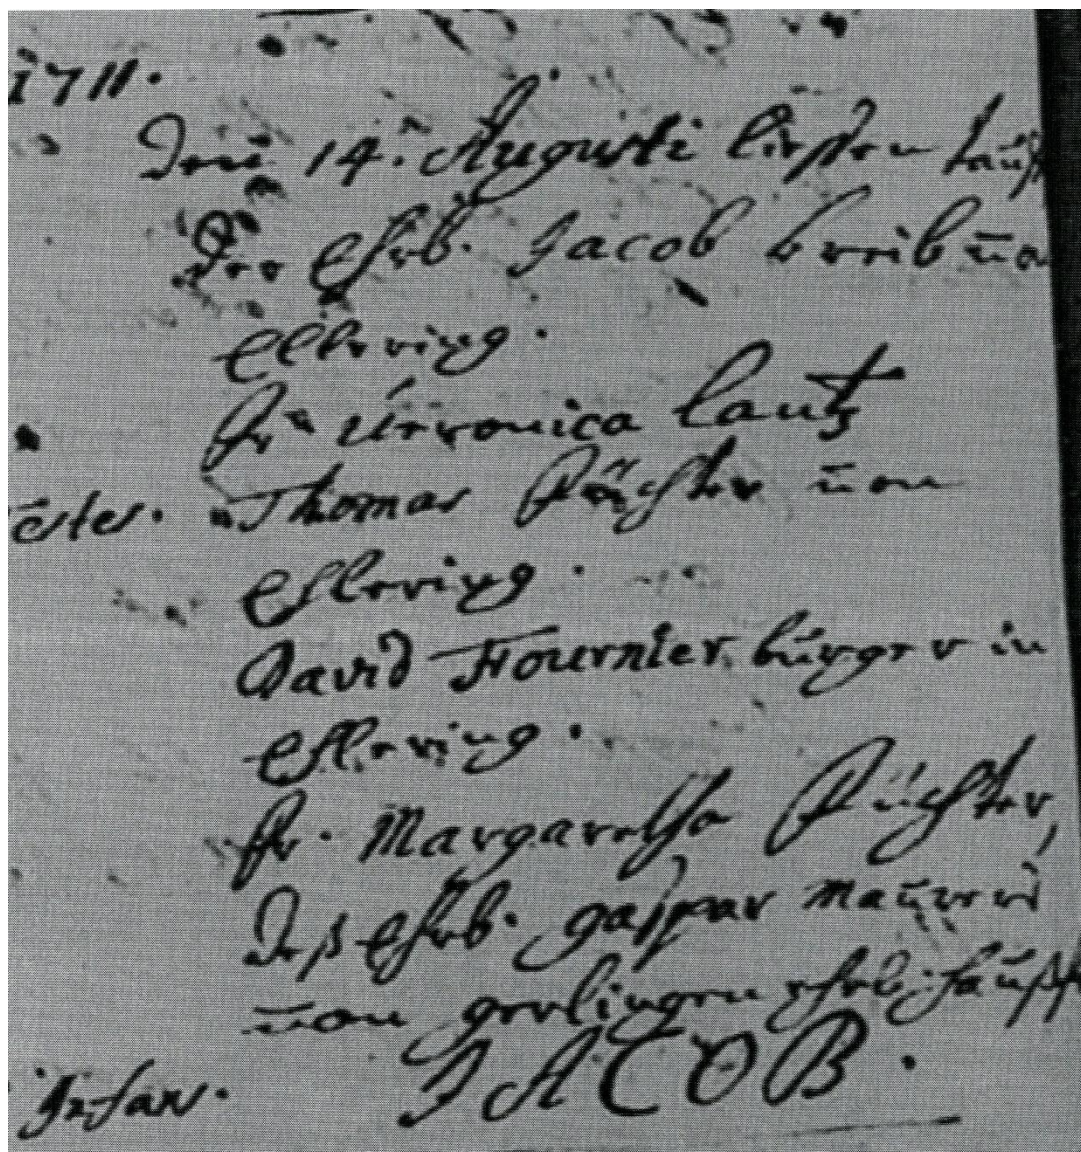 1711.
Den 14. Augusti liessen tauf
der Ehrb. Jacob Weib von
Ellering.
Fr. Veronica Lautz
Testes. Thomas Richter von
Esllering.
David Fournier, bürger in
Esllering.
Fr. Margaretha Richter,
deß Ehrb. gaspar maurers
von gerlingen Ehel. hausf
Infan. JACOB.